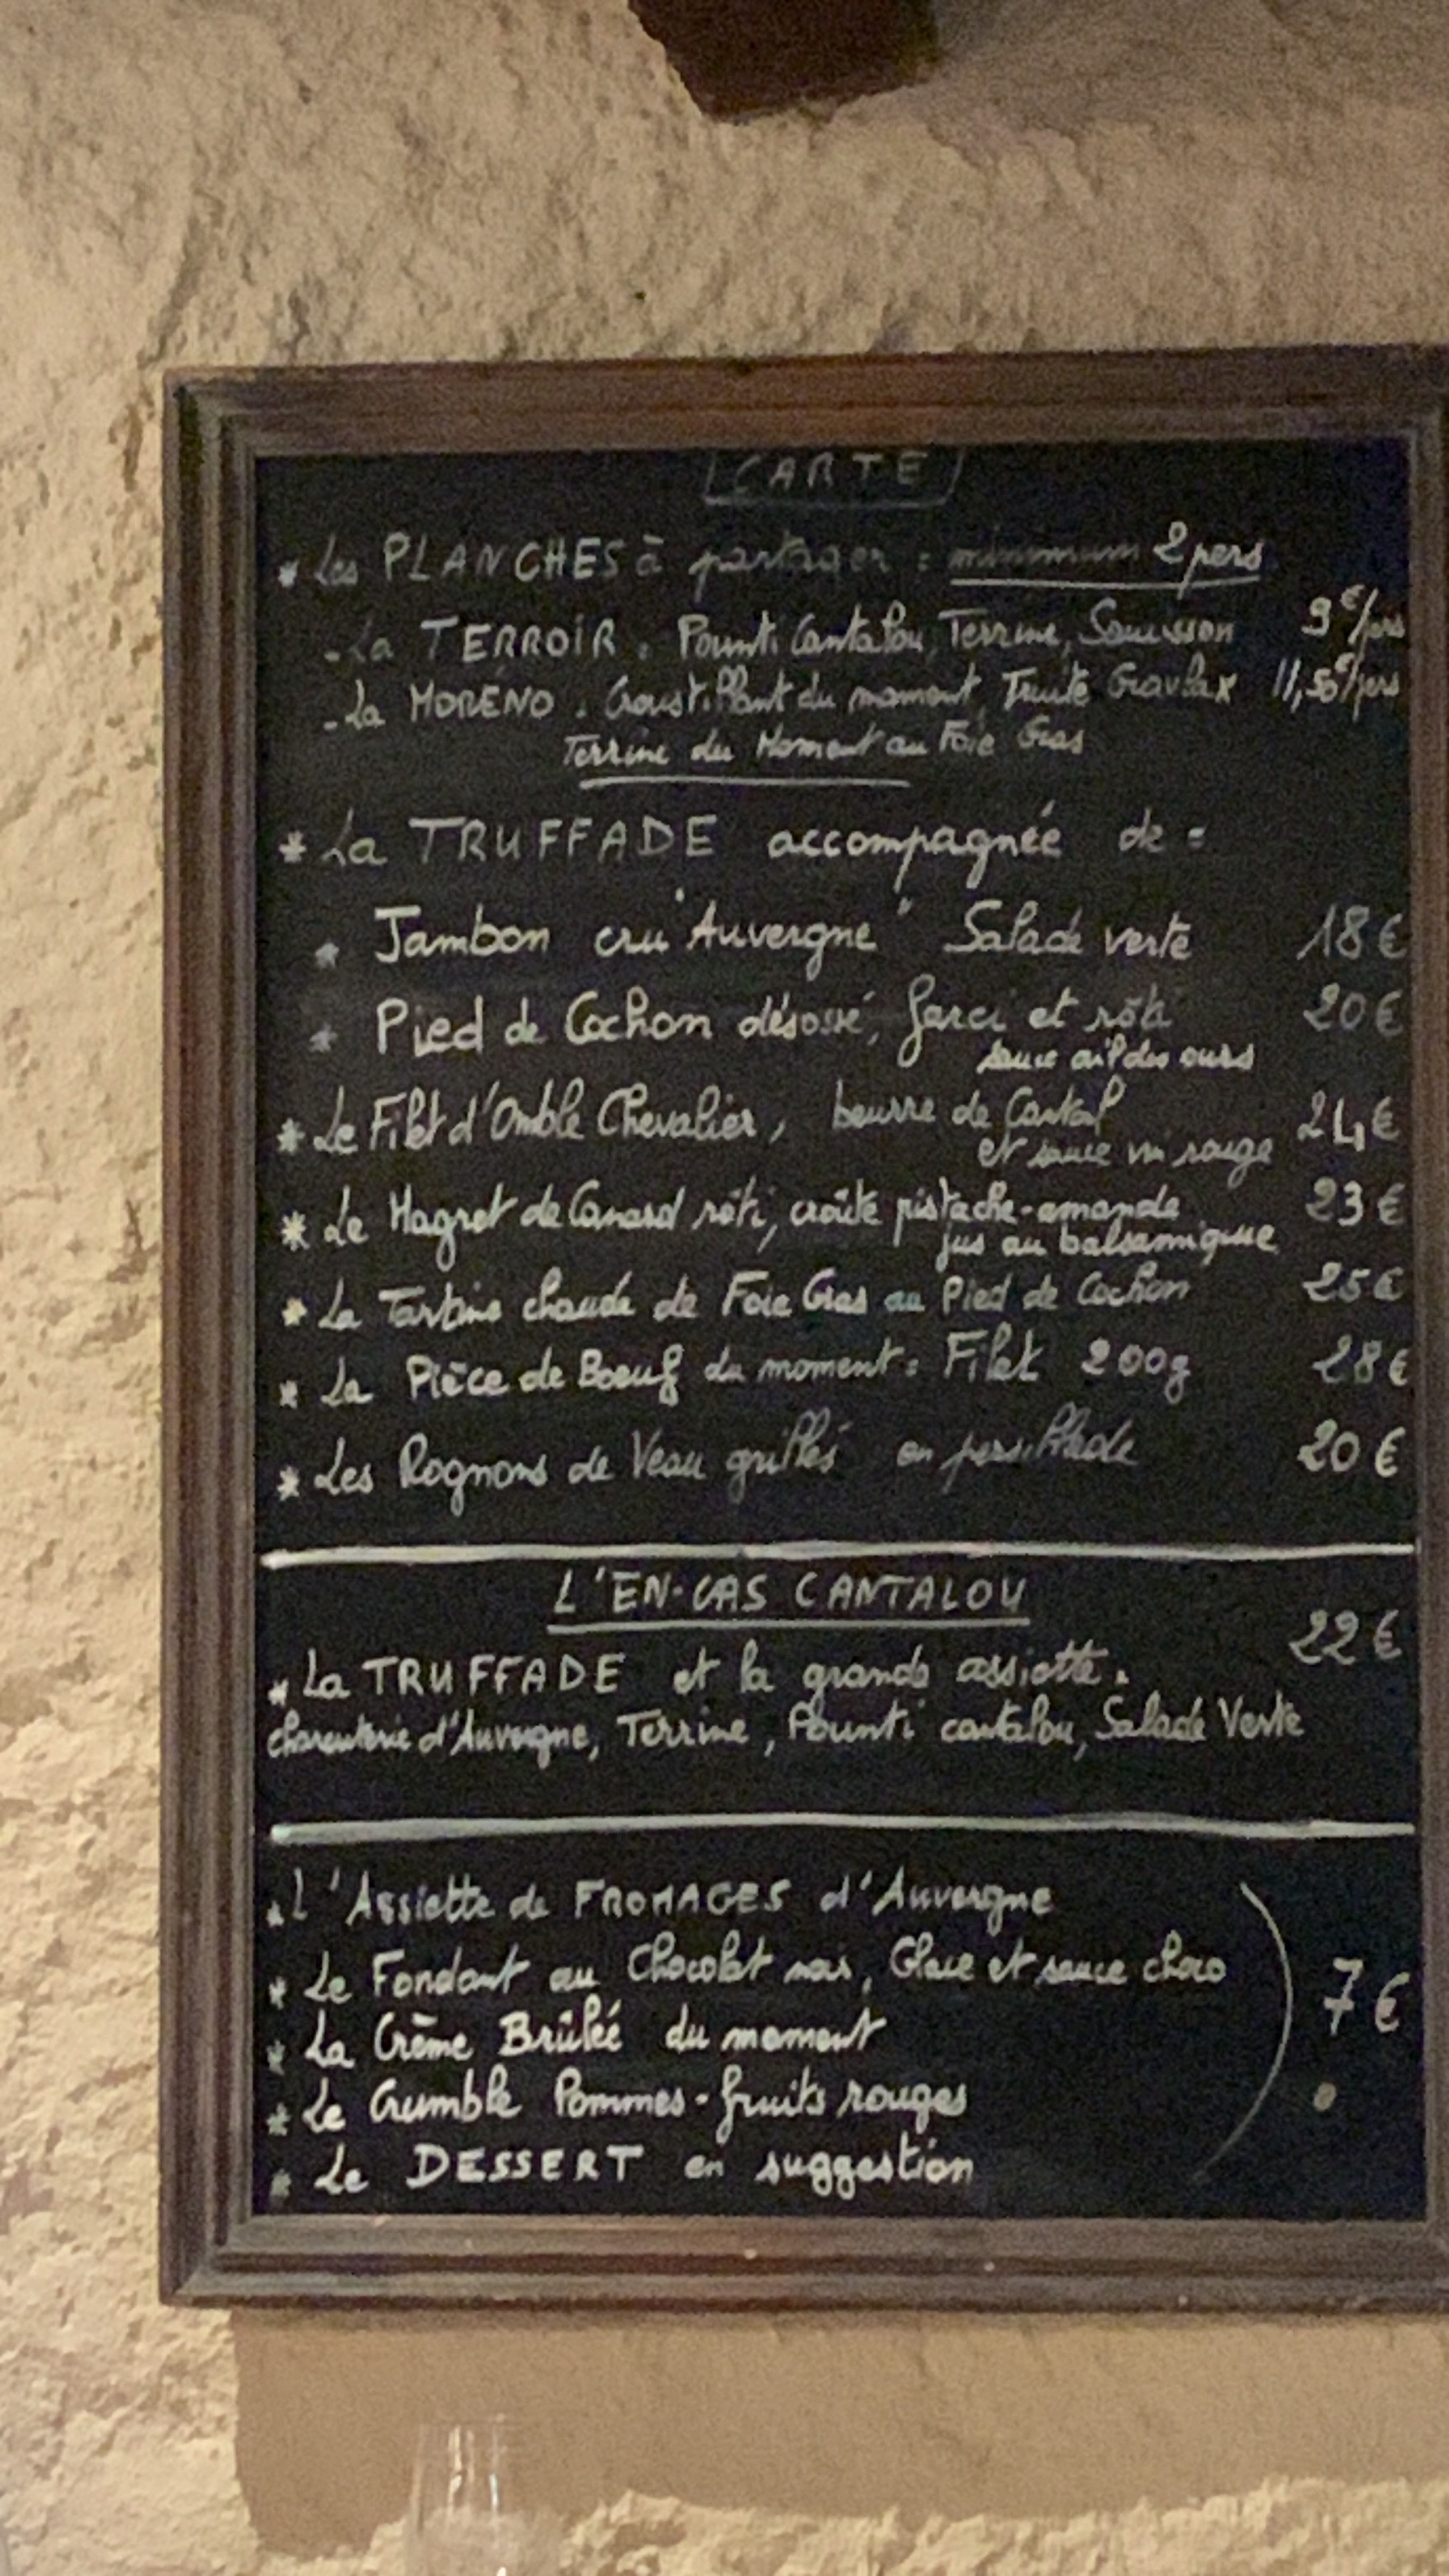 CARTE
* Les PLANCHES à partager : minimum 2 pers
- La TERROIR : Pounti Cantalou, Terrine, Saucisson 9€/pers
- La MORÉNO : Croustillant du moment, Truite Gravlax 11,50€/pers
Terrine du Moment au Foie Gras
* La TRUFFADE accompagnée de :
* Jambon cru "Auvergne" Salade verte 18€
* Pied de Cochon désossé, farci et rôti 20€
sauce ail des ours
* Le Filet d'Omble Chevalier, beurre de Cantal 24€
et sauce vin rouge
* Le Magret de Canard rôti, croûte pistache-amande 23€
jus au balsamique
* La Tartine chaude de Foie Gras au Pied de Cochon 25€
* La Pièce de Boeuf du moment : Filet 200g 28€
* Les Rognons de Veau grillés en persillade 20€
L'EN-CAS CANTALOU
22€
* La TRUFFADE et la grande assiette :
charcuterie d'Auvergne, Terrine, Pounti cantalou, Salade Verte
* L'Assiette de FROMAGES d'Auvergne
* Le Fondant au Chocolat noir, Glace et sauce choco
7€
* La Crème Brûlée du moment
* Le Crumble Pommes-fruits rouges
* Le DESSERT en suggestion